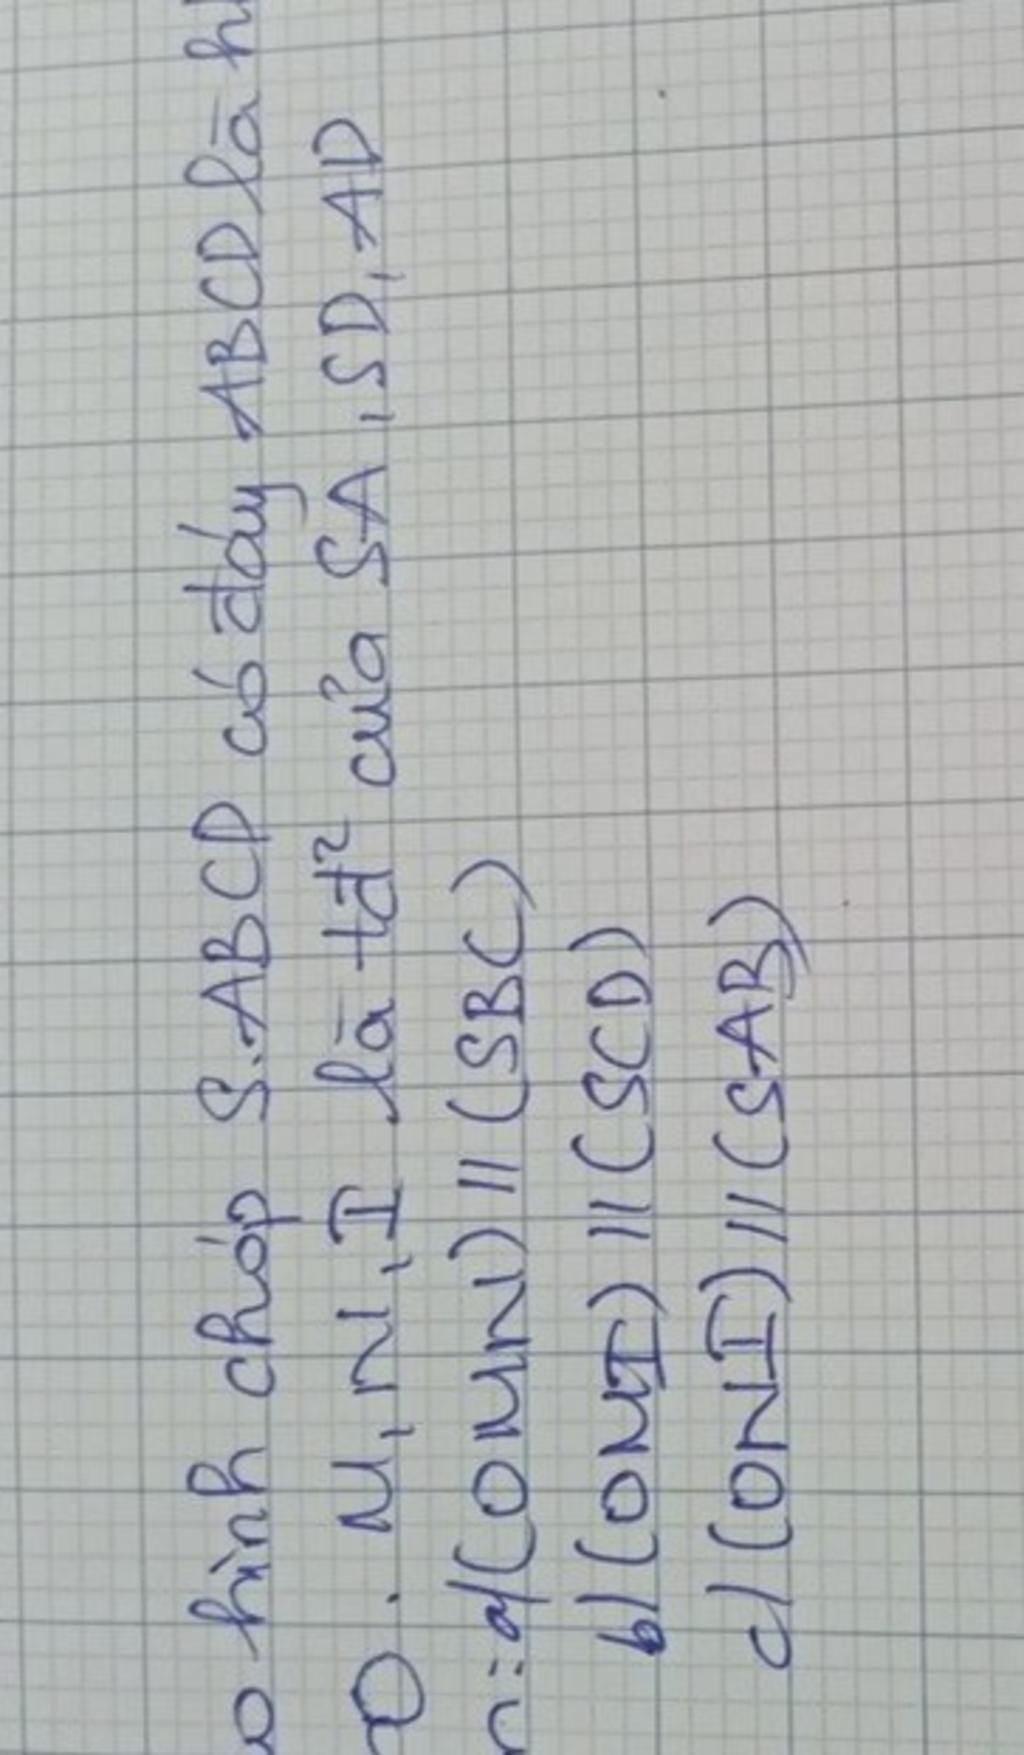 hình chóp S.ABCD có đáy ABCD là
O. M, N, I là tđ² của SA, SD, AD
a/ (OMN) // (SBC)
b/ (OMI) // (SCD)
c/ (ONI) // (SAB)